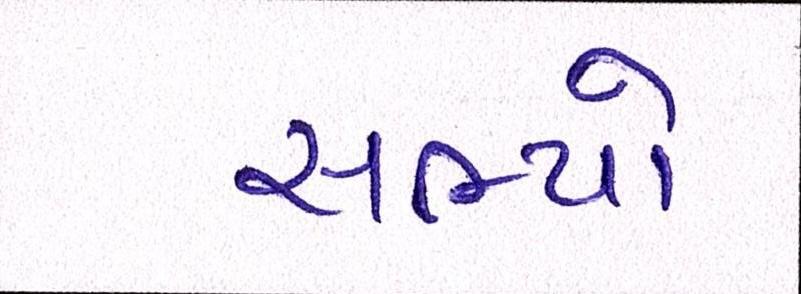 સભ્યો